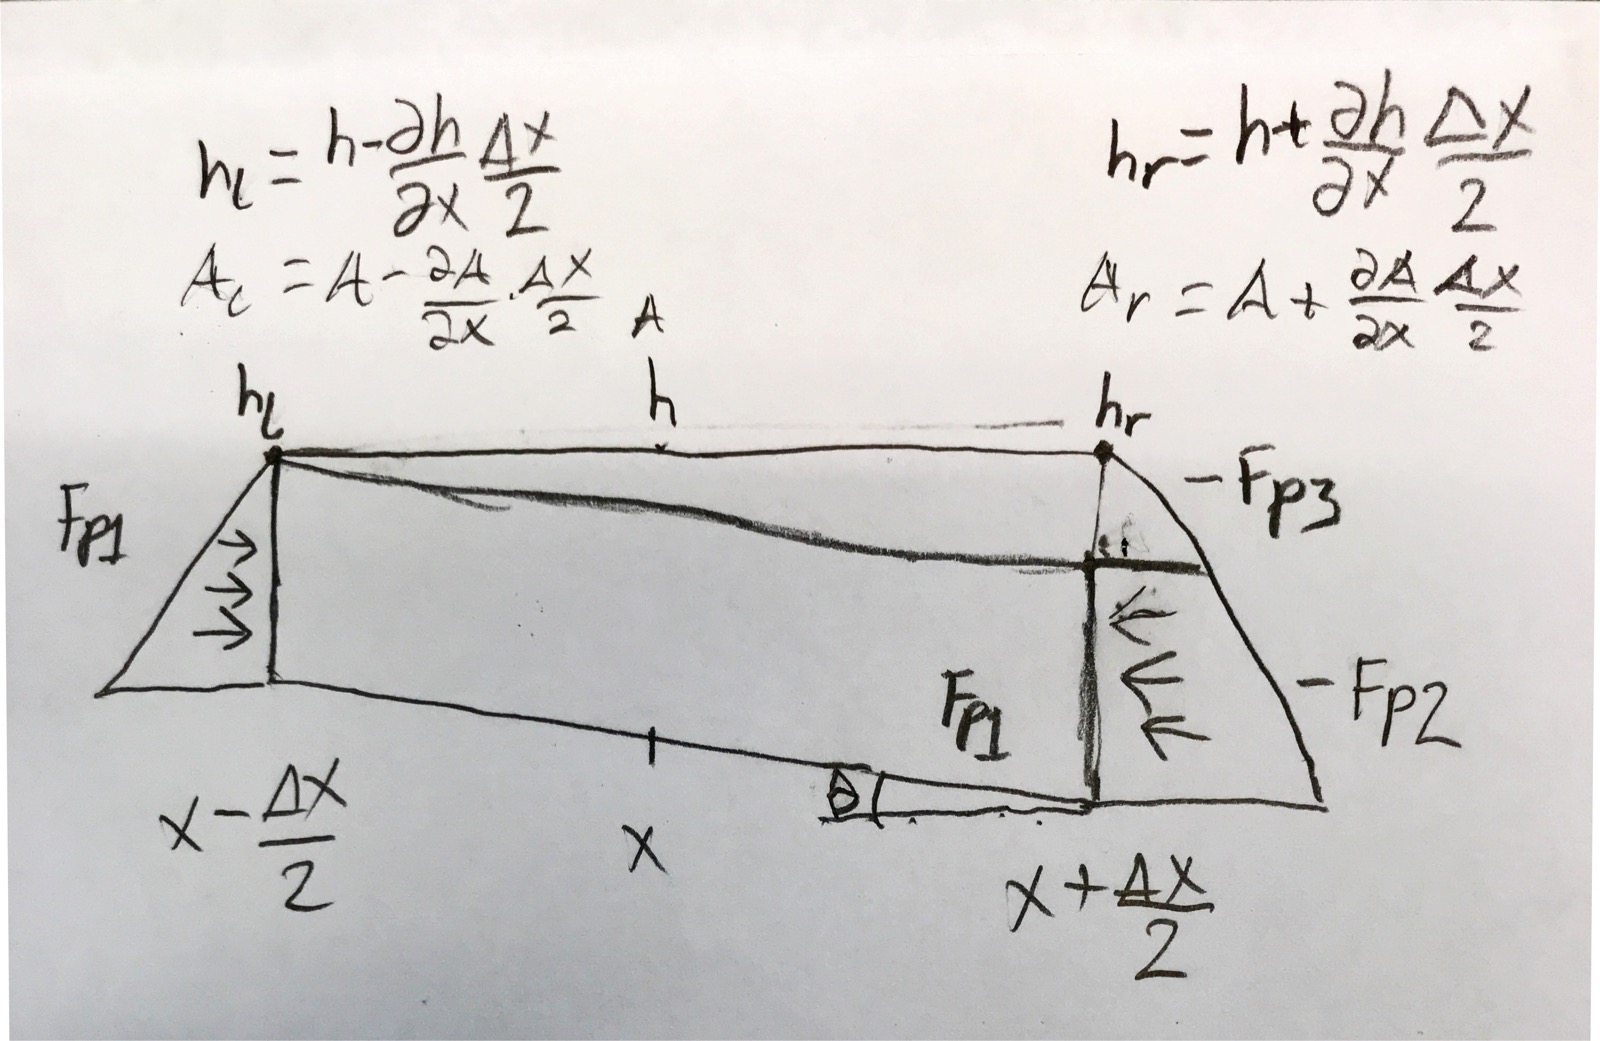 hₗ = h - ∂h/∂x Δx/2
hᵣ = h + ∂h/∂x Δx/2
Aₗ = A - ∂A/∂x · Δx/2
Aᵣ = A + ∂A/∂x Δx/2
A
hₗ
h
hᵣ
Fp1
-Fp3
Fp1
-Fp2
θ
x - Δx/2
x
x + Δx/2